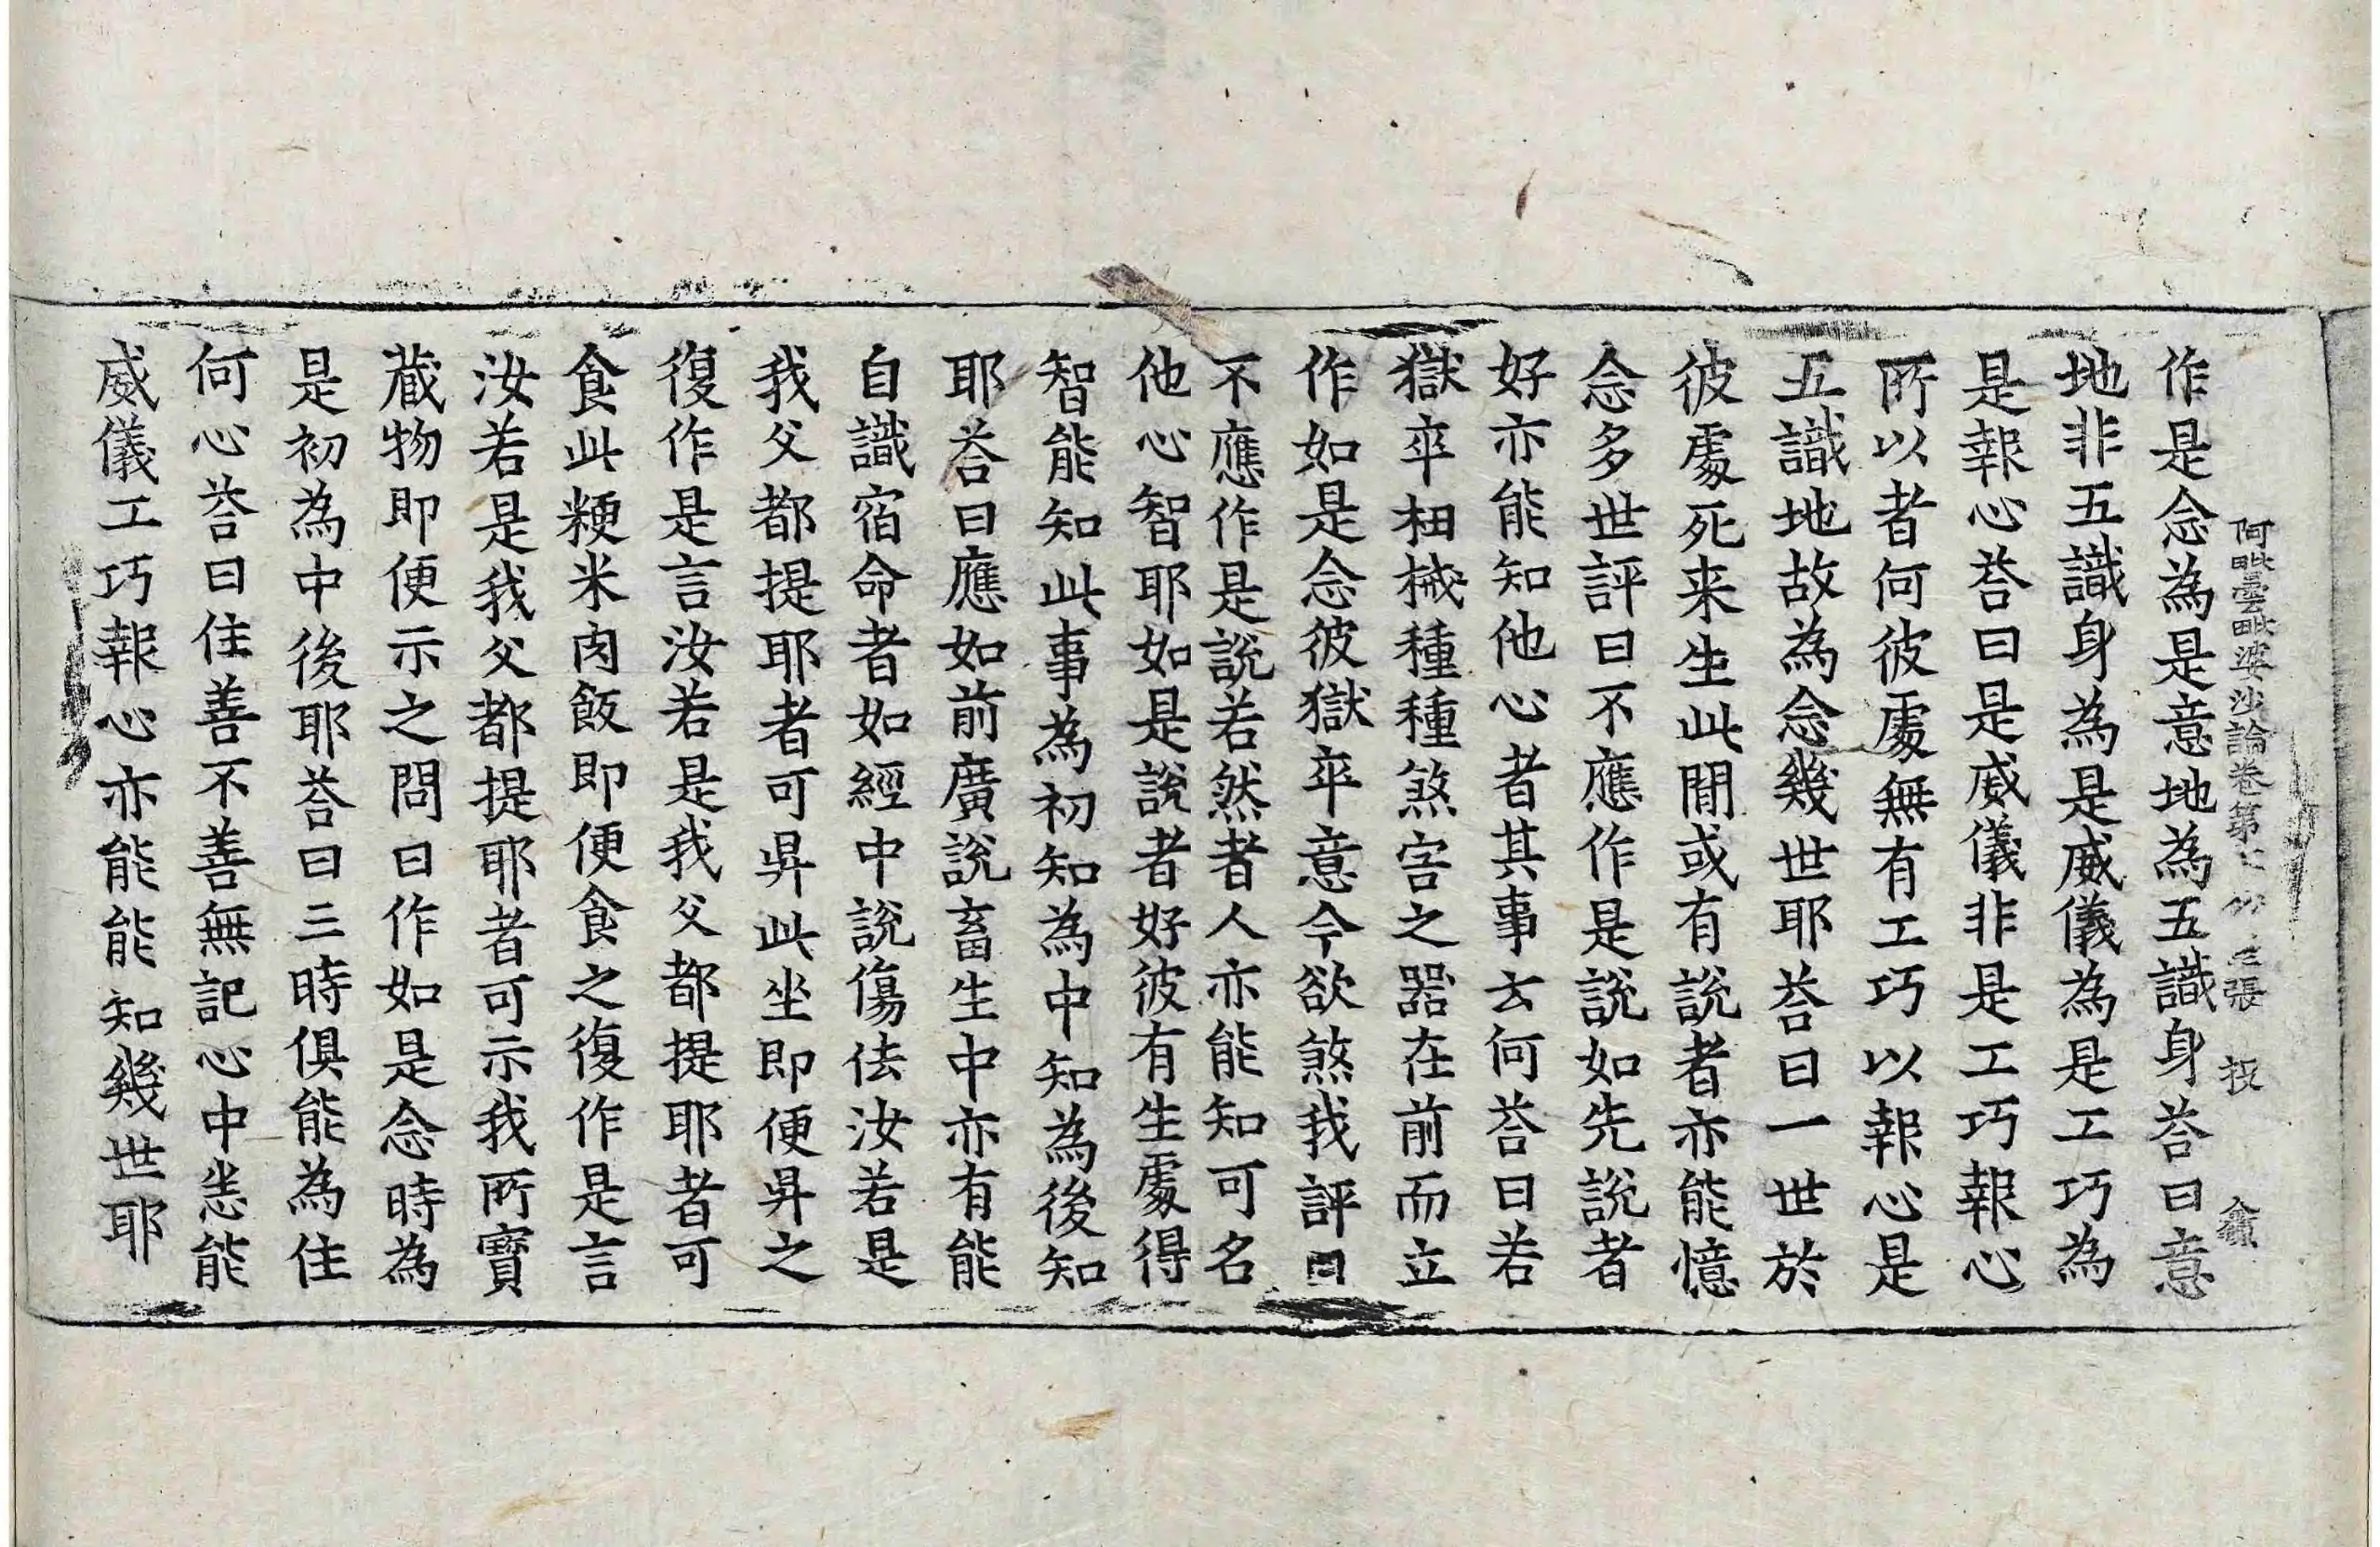 阿毗曇毗婆沙論卷第七 張
作是念為是意地為五識身荅曰意
地非五識身為是威儀為是工巧為
是報心荅曰是威儀非是工巧報心
所以者何彼處無有工巧以報心是
五識地故為念幾世耶荅曰一世於
彼處死来生此閒或有說者亦能憶
念多世評曰不應作是說如先說者
好亦能知他心者其事云何荅曰若
獄卒杻械種種煞害之器在前而立
作如是念彼獄卒意令欲煞我評曰
不應作是說若然者人亦能知可名
他心智耶如是說者好彼有生處得
智能知此事為初知為中知為後知
耶荅曰應如前廣說畜生中亦有能
自識宿命者如經中說傷佉汝若是
我父都提耶者可昇此坐即便昇之
復作是言汝若是我父都提耶者可
食此粳米肉飯即便食之復作是言
汝若是我父都提耶者可示我所寶
蔵物即便示之問曰作如是念時為
是初為中後耶荅曰三時俱能為住
何心荅曰住善不善無記心中悉能
威儀工巧報心亦能能知幾世耶